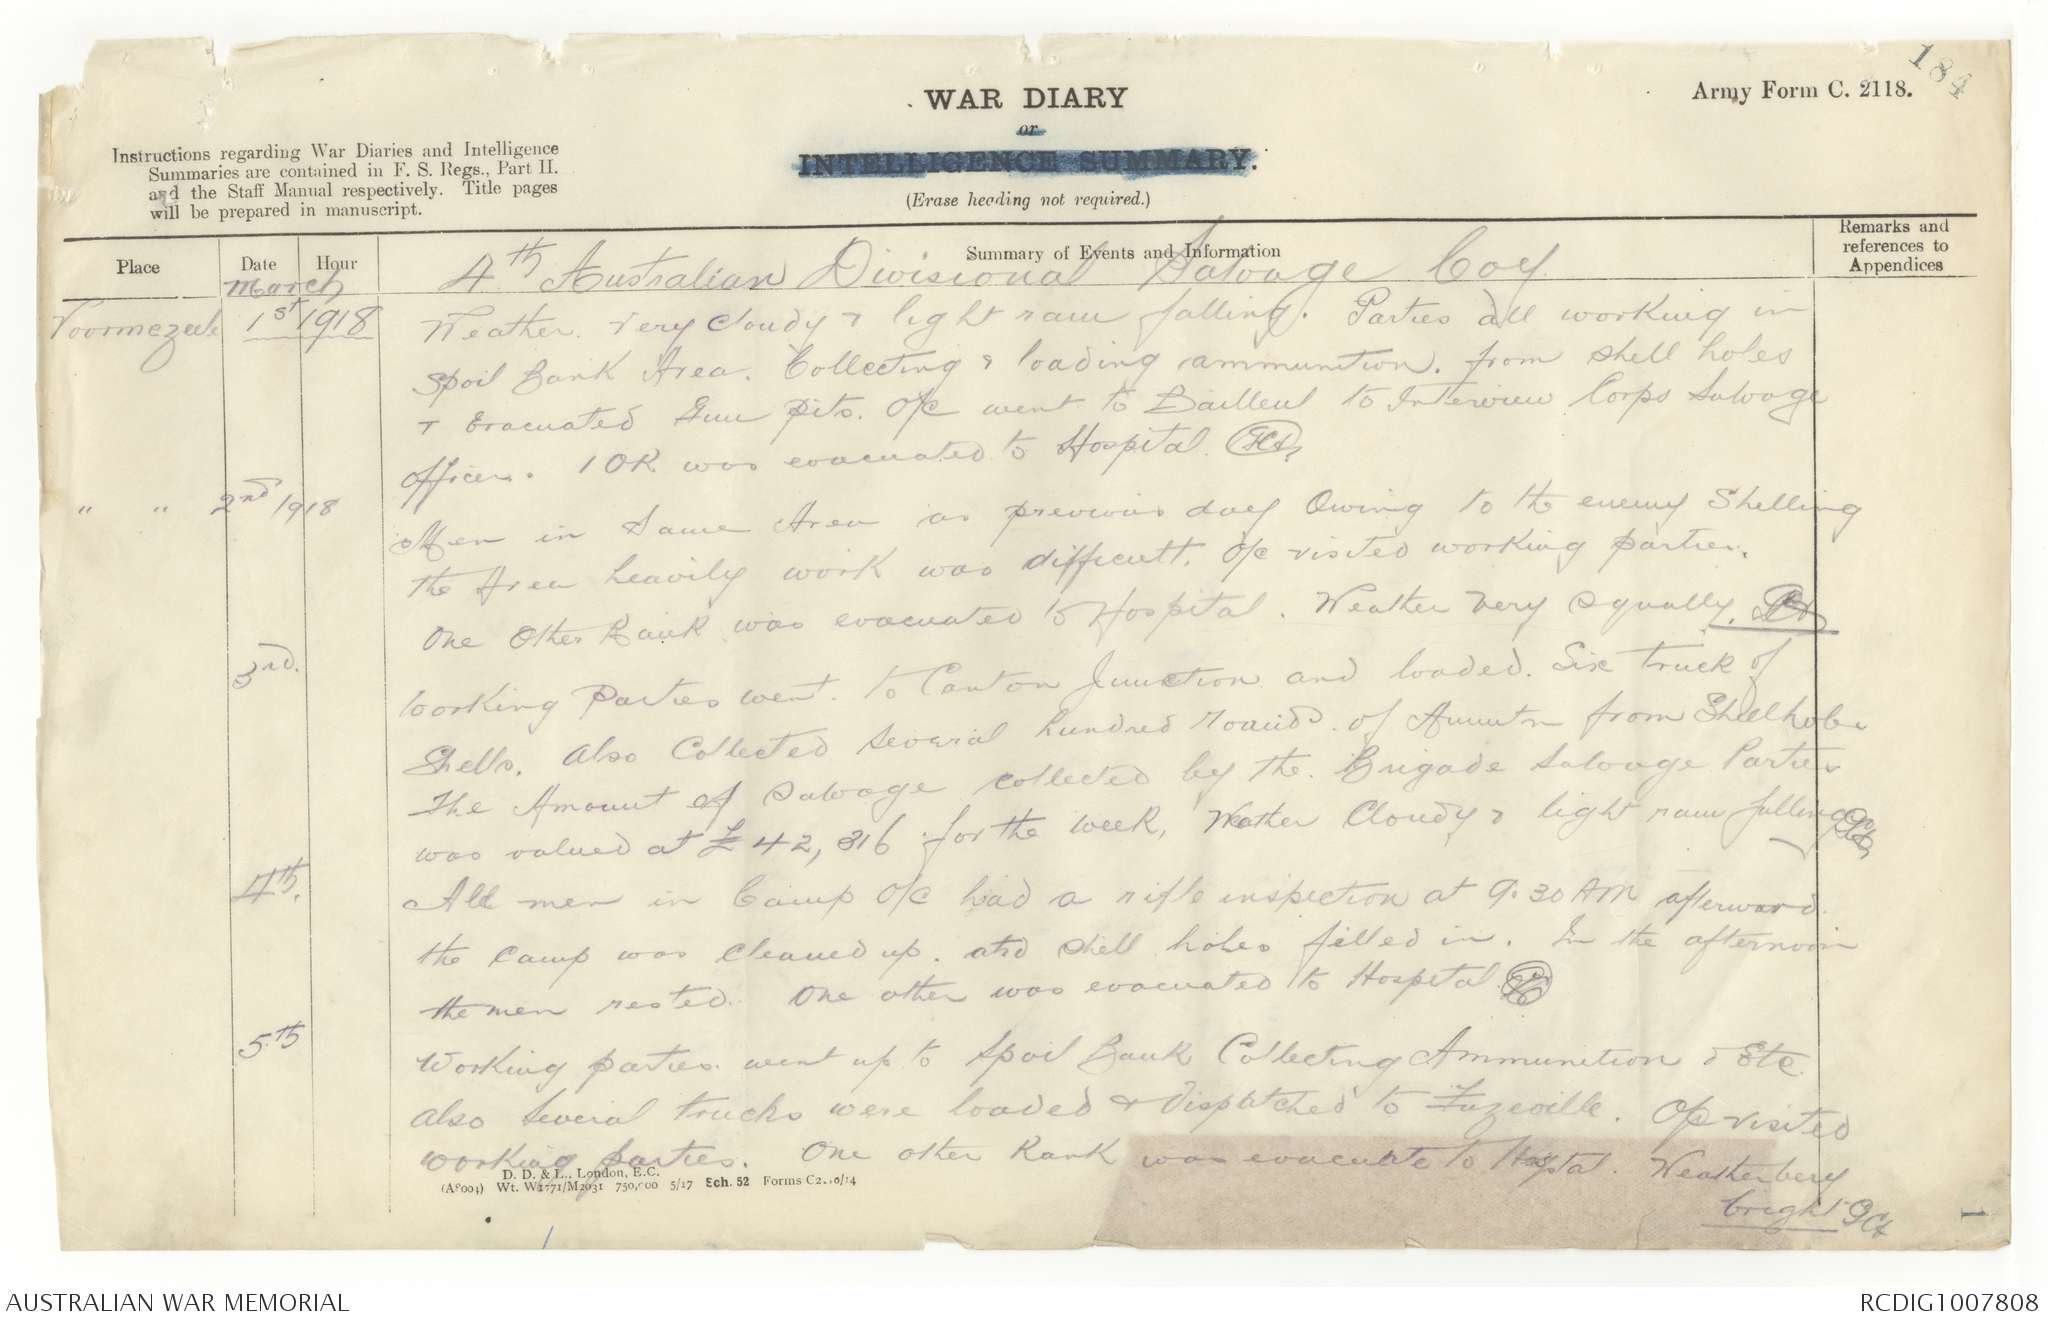 184
Army Form C. 2118.
WAR DIARY
or
INTELLIGENCE SUMMARY.
(Erase heading not required.)
Instructions regarding War Diaries and Intelligence
Summaries are contained in F. S. Regs., Part II.
and the Staff Manual respectively. Title pages
will be prepared in manuscript.
Place
Date
Hour
Summary of Events and Information
Remarks and
references to
Appendices
March
4th Australian Divisional Salvage Coy
Voormezeele 1st 1918 Weather. Very cloudy & light rain falling. Parties all working in
Spoil Bank Area. Collecting & loading ammunition. from shell holes
& Evacuated Gun pits. O/C went to Bailleul to Interview Corps Salvage
Officer. 1 OR was evacuated to Hospital
" " 2nd 1918 Men in Same Area as previous day Owing to the enemy Shelling
the Area heavily work was difficult. O/C visited working parties.
One Other Rank was evacuated to Hospital. Weather Very Squally.
3rd. Working Parties went to Canton Junction and loaded. Six truck of
Shells. also Collected Several hundred rounds of Ammtn from Shellholes
The Amount of Salvage collected by the Brigade Salvage Parties
was valued at £42,316 for the week, Weather Cloudy & light rain falling
4th. All men in Camp O/C had a rifle inspection at 9.30 AM afterward
the camp was cleaned up. and shell holes filled in. In the afternoon
the men rested. One other was evacuated to Hospital
5th Working parties went up to Spoil Bank Collecting Ammunition & Etc
also Several trucks were loaded & Dispatched to Fuzeville. O/C visited
working parties. One other Rank was evacuate to Hosptal. Weather very
bright
D. D. & L., London, E.C.
(A8004) Wt. W1771/M2031 750,000 5/17 Sch. 52 Forms C2118/14
1
AUSTRALIAN WAR MEMORIAL
RCDIG1007808